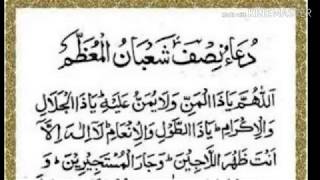 KINEMASTER
دُعَاءُ نِصْفِ شَعْبَانُ الْمُعَظَّمْ
اَللّٰهُمَّ يَاذَا الْمَنِّ وَلَا يُمَنُّ عَلَيْهِ يَاذَا الْجَلَالِ
وَالْاِكْرَامِ يَاذَا الطَّوْلِ وَالْاِنْعَامِ لَآ اِلٰهَ اِلَّا
اَنْتَ ظَهْرُ اللَّاجِيْنَ وَجَارُ الْمُسْتَجِيْرِيْنَ وَ